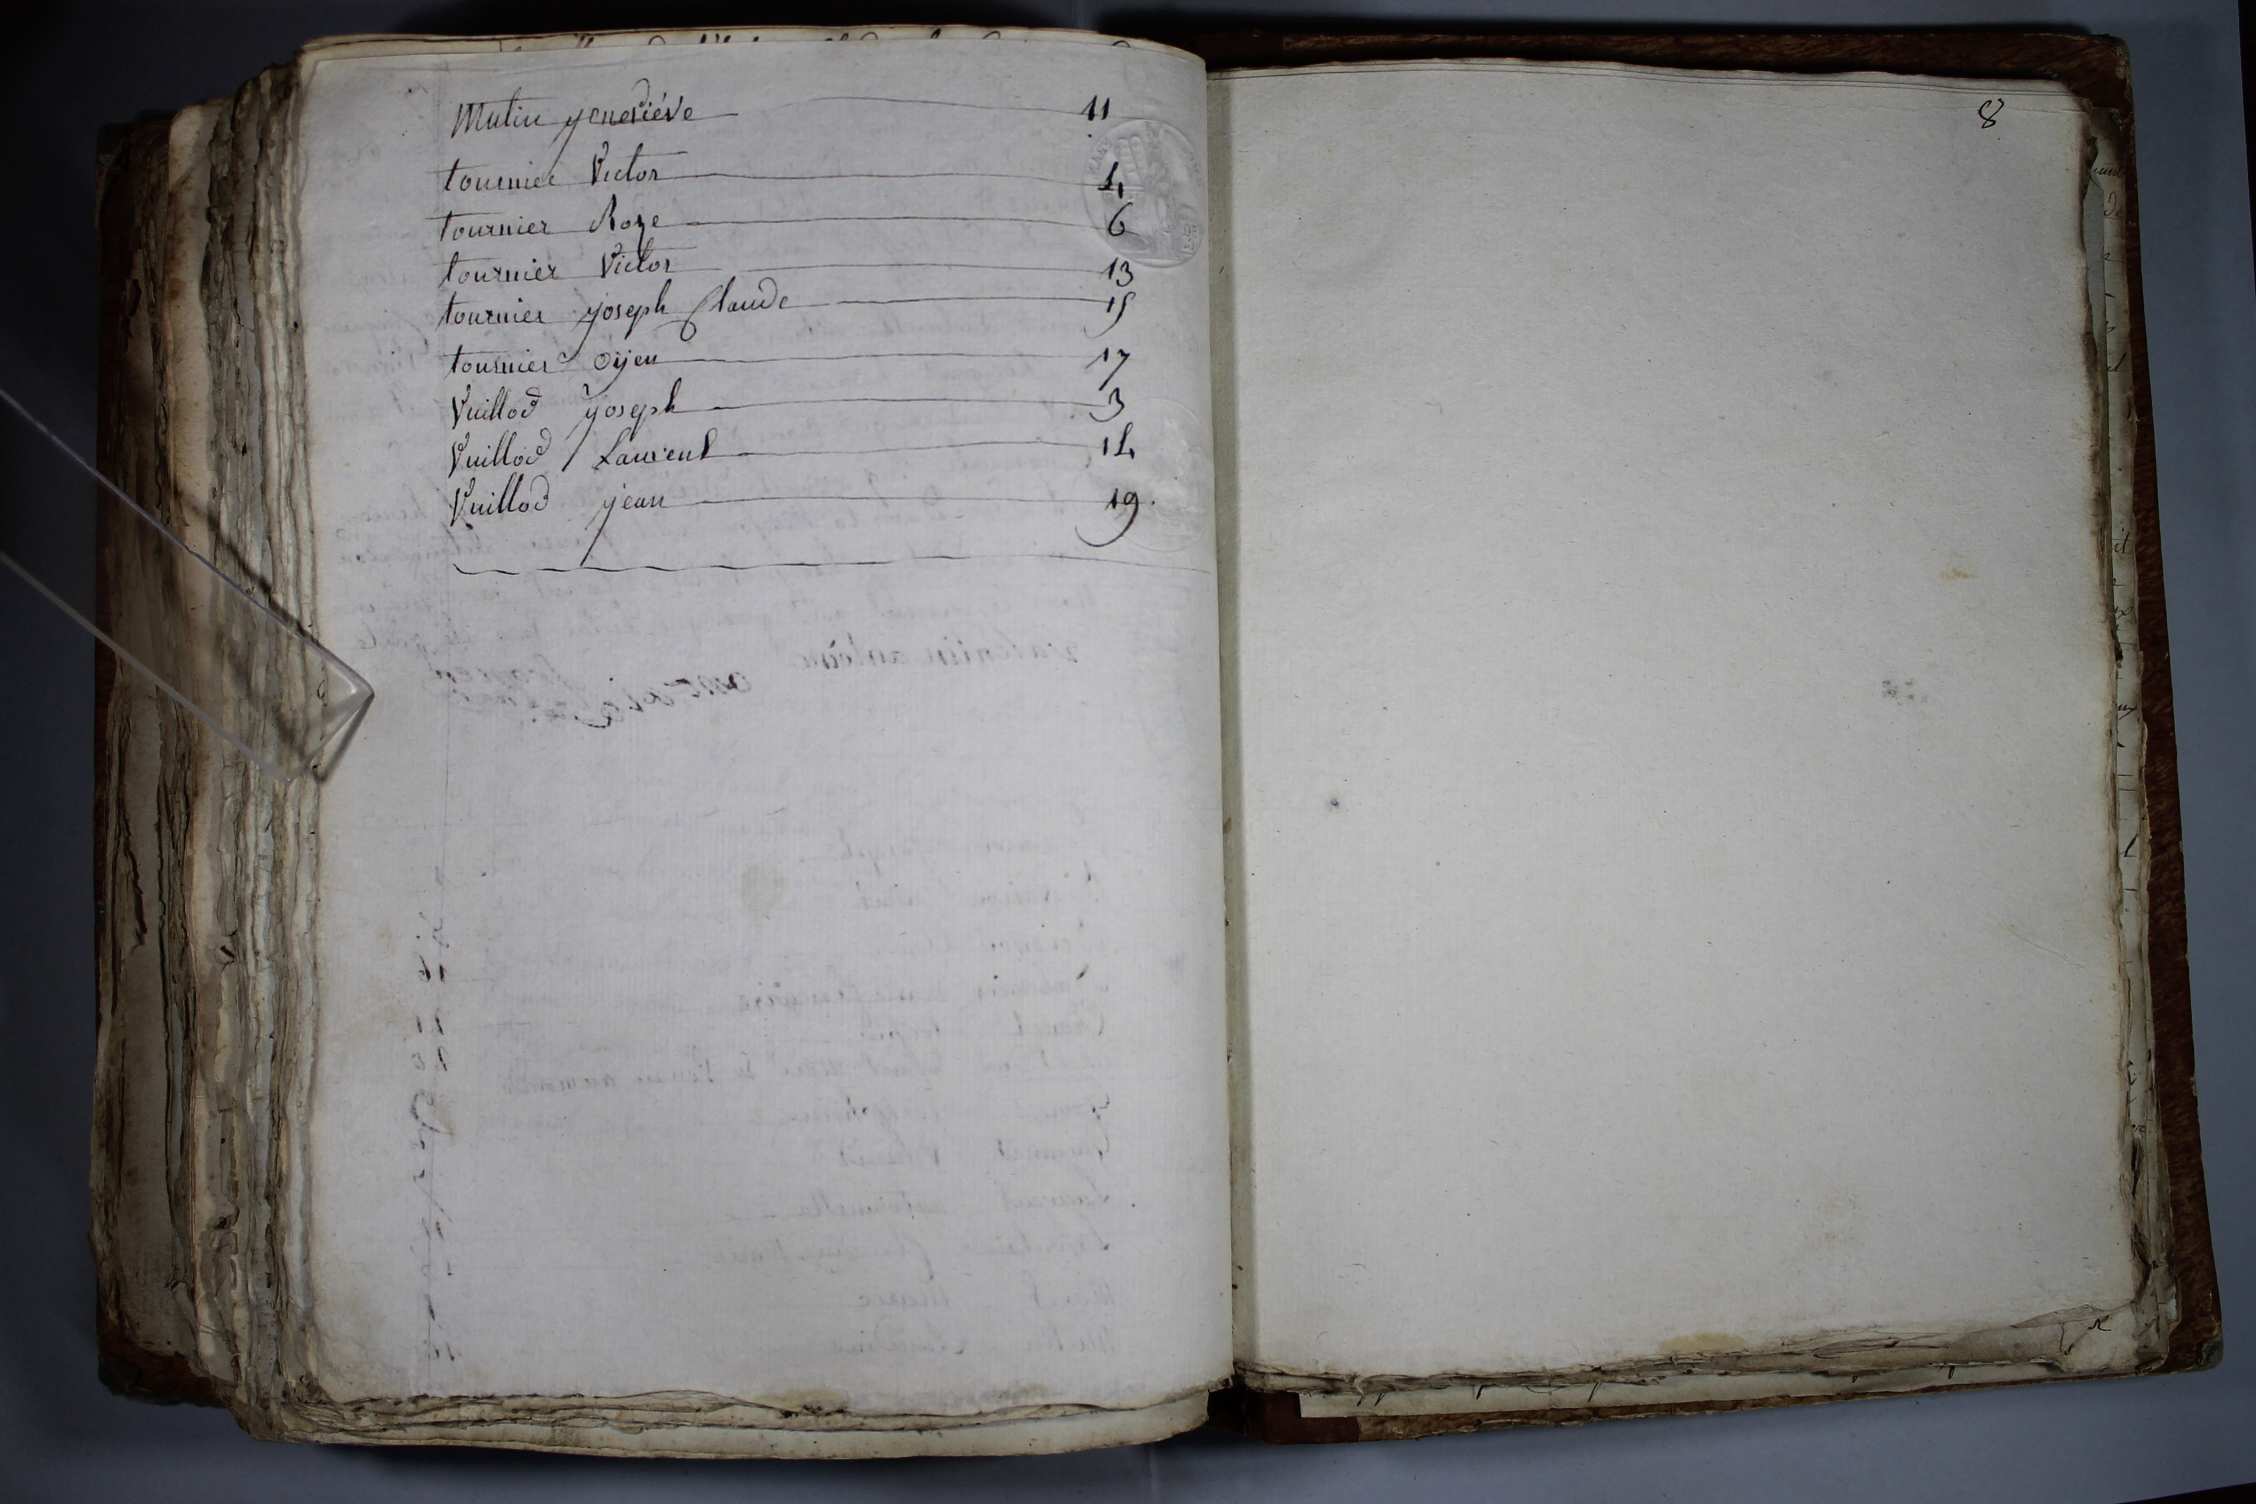 Mutin geneviéve 11
tournier Victor 4
tournier Roze 6
tournier Victor 13
tournier joseph Claude 15
tournier oyen 17
Vuillod joseph 3
Vuillod Laurent 14
Vuillod jean 19.
8